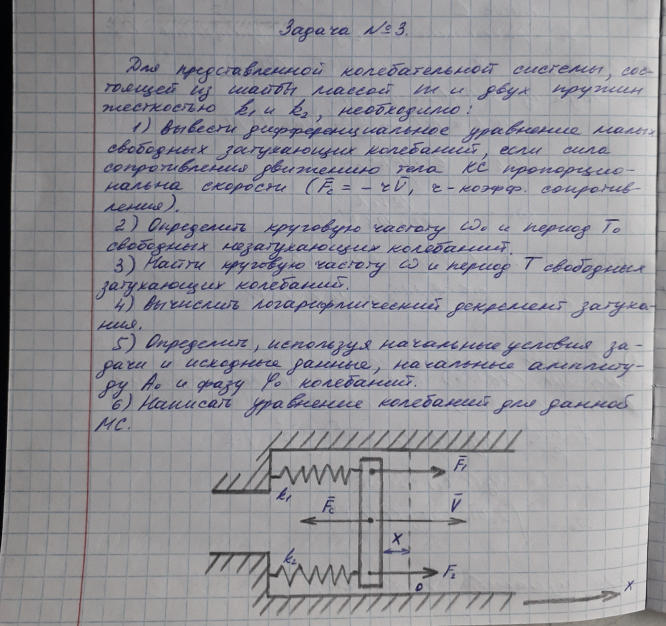 Задача № 3.
Для представленной колебательной системы, сос-
тоящей из шайбы массой m и двух пружин
жесткостью k₁ и k₂, необходимо:
1) Вывести дифференциальное уравнение малых
свободных затухающих колебаний, если сила
сопротивления движению тела КС пропорцио-
нальна скорости (F̄c = - rV̄, r - коэфф. сопротив-
ления).
2) Определить круговую частоту ω₀ и период T₀
свободных незатухающих колебаний.
3) Найти круговую частоту ω и период T свободных
затухающих колебаний.
4) Вычислить логарифмический декремент затуха-
ния.
5) Определить, используя начальные условия за-
дачи и исходные данные, начальные амплиту-
ду A₀ и фазу φ₀ колебаний.
6) Написать уравнение колебаний для данной
МС.
F̄₁
k₁
F̄c
V̄
x
k₂
F₂
0
x